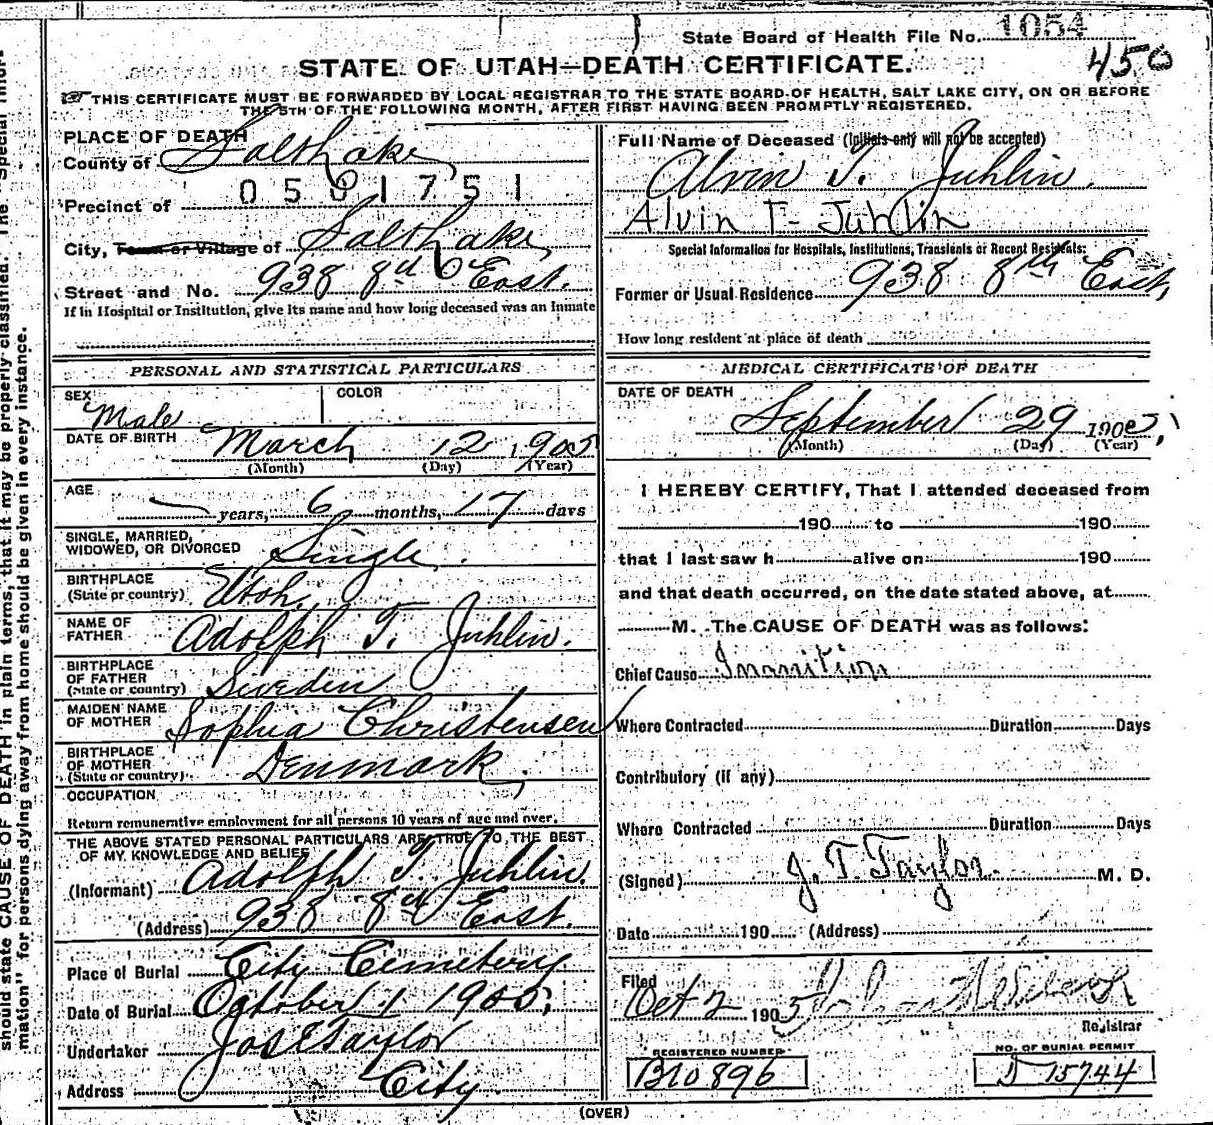 State Board of Health File No. 1054
450
STATE OF UTAH—DEATH CERTIFICATE.
THIS CERTIFICATE MUST BE FORWARDED BY LOCAL REGISTRAR TO THE STATE BOARD OF HEALTH, SALT LAKE CITY, ON OR BEFORE
THE 5TH OF THE FOLLOWING MONTH, AFTER FIRST HAVING BEEN PROMPTLY REGISTERED.
PLACE OF DEATH
County of Salt Lake
0501751
Precinct of
City, Town or Village of Salt Lake
Street and No. 938 8th East.
If in Hospital or Institution, give its name and how long deceased was an Inmate
Full Name of Deceased (Initials only will not be accepted)
Alvin T. Juhlin.
Alvin T- Juhlin
Special Information for Hospitals, Institutions, Transients or Recent Residents:
Former or Usual Residence 938 8th East,
How long resident at place of death
PERSONAL AND STATISTICAL PARTICULARS
SEX Male
COLOR
DATE OF BIRTH March 12, 1905
(Month) (Day) (Year)
AGE
years, 6 months, 17 days
SINGLE, MARRIED,
WIDOWED, OR DIVORCED Single.
BIRTHPLACE
(State or country) Utah,
NAME OF
FATHER Adolph T. Juhlin.
BIRTHPLACE
OF FATHER
(State or country) Sweden
MAIDEN NAME
OF MOTHER Sophia Christensen
BIRTHPLACE
OF MOTHER
(State or country) Denmark,
OCCUPATION
Return remunerative employment for all persons 10 years of age and over.
THE ABOVE STATED PERSONAL PARTICULARS ARE TRUE TO THE BEST
OF MY KNOWLEDGE AND BELIEF
(Informant) Adolph T. Juhlin.
(Address) 938 8th East.
Place of Burial City Cemetery
Date of Burial October 1 1905,
Undertaker Jos E Taylor
Address City
MEDICAL CERTIFICATE OF DEATH
DATE OF DEATH
September 29 1905,
(Month) (Day) (Year)
I HEREBY CERTIFY, That I attended deceased from
190 to 190
that I last saw h alive on 190
and that death occurred, on the date stated above, at
M. The CAUSE OF DEATH was as follows:
Chief Cause Inanition
Where Contracted Duration Days
Contributory (if any)
Where Contracted Duration Days
(Signed) J. T. Taylor. M. D.
Date 190 (Address)
Filed
Oct 2 1905
Registrar
REGISTERED NUMBER
B10896
NO. OF BURIAL PERMIT
D 15744
(OVER)
should state CAUSE OF DEATH in plain terms, that it may be properly classified. The "Special Infor-
mation" for persons dying away from home should be given in every instance.